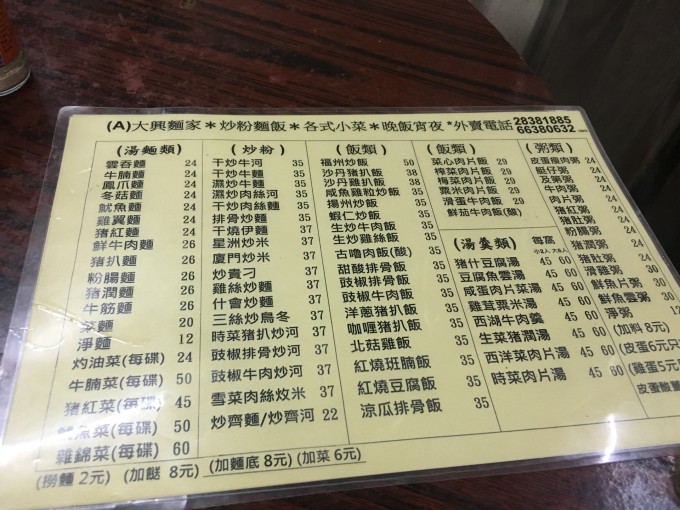 (A)大興麵家＊炒粉麵飯＊各式小菜＊晚飯宵夜*外賣電話 28381885
66380632
(湯麵類)
雲吞麵 24
牛腩麵 24
鳳爪麵 24
冬菇麵 24
魷魚麵 24
雞翼麵 24
豬紅麵 24
鮮牛肉麵 26
豬扒麵 26
粉腸麵 26
豬潤麵 26
牛筋麵 26
菜麵 20
淨麵 12
灼油菜(每碟) 24
牛腩菜(每碟) 50
猪紅菜(每碟) 45
魷魚菜(每碟) 50
雜錦菜(每碟) 60
(炒粉)
干炒牛河 35
干炒牛麵 35
濕炒肉絲河 35
濕炒牛河 35
干炒肉絲麵 35
排骨炒麵 35
干燒伊麵 37
星洲炒米 37
廈門炒米 37
炒貴刁 37
雞絲炒麵 37
什會炒麵 37
三絲炒烏冬 37
時菜豬扒炒河 37
豉椒排骨炒河 37
豉椒牛肉炒河 37
雪菜肉絲炆米 37
炒齋麵/炒齋河 22
(飯類)
福州炒飯 50
沙丹豬扒飯 38
沙丹雞扒飯 38
咸魚雞粒炒飯 35
揚州炒飯 35
蝦仁炒飯 35
生炒牛肉飯 35
生炒雞絲飯 35
古嚕肉飯(酸) 35
甜酸排骨飯 35
豉椒排骨飯 35
豉椒牛肉飯 35
洋蔥豬扒飯 35
咖喱豬扒飯 35
北菇雞飯 35
紅燒班腩飯 35
紅燒豆腐飯 35
涼瓜排骨飯 35
(飯類)
菜心肉片飯 29
榨菜肉片飯 29
梅菜肉片飯 29
粟米肉片飯 29
滑蛋牛肉飯 29
鮮茄牛肉飯(酸)
(湯羹類) 每窩
豬什豆腐湯 45 60
豆腐魚雲湯 45 60
咸蛋肉片菜湯 45 60
雞茸粟米湯 45 60
西湖牛肉羹 45 60
生菜豬潤湯 45 60
西洋菜肉片湯 45 60
時菜肉片湯 45 60
(粥類)
皮蛋瘦肉粥 24
艇仔粥 24
及第粥 24
牛肉粥 24
肉片粥 24
豬紅粥 24
豬肚粥 24
粉腸粥 24
豬潤粥 24
滑雞粥 30
鮮魚片粥 30
鮮魚雲粥 30
淨粥 12
(加料 8元)
(皮蛋 6元只
(雞蛋 5元
(撈麵 2元) (加餸 8元) (加麵底 8元) (加菜 6元)